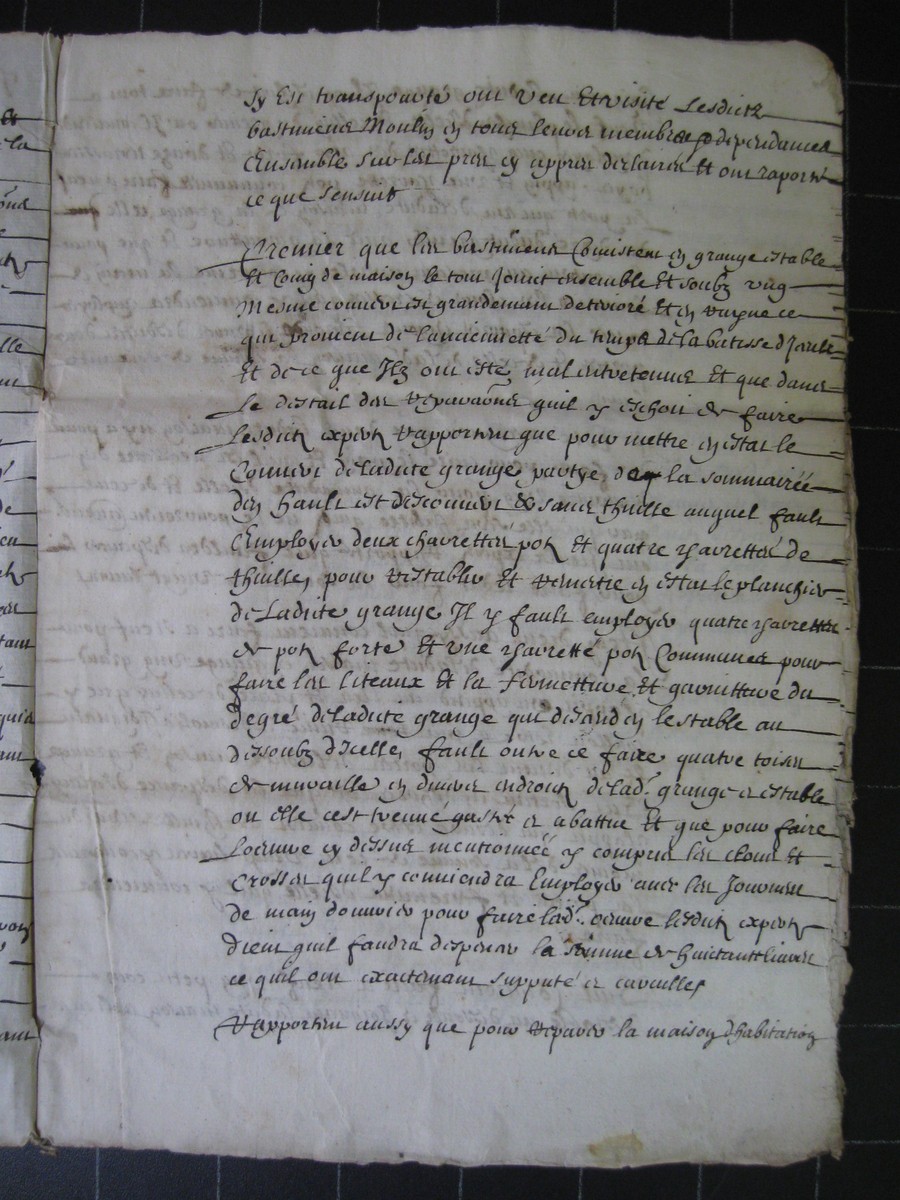 sy est transpourté ont veu Et visité Lesdictz
bastimens Moulin en tous leurs membres & dependances
Ensemble sur les prez cy appres desclairez et ont raporté
ce que sensuit
Premier que les bastimens Consistent en grange estable
Et Coing de maison le tout Joinct ensemble Et soubz ung
Mesme couvert est grandemant detterioré Et en ruyne ce
qui provient de lancienneté du temps de la batisse dJceulx
Et de ce que Jlz ont estés mal entretenus Et que dans
Le destail des reparaõns quil y eschoit de faire
Lesdictz expertz rapportent que pour mettre en estat le
Couvert de ladite grange partye de la sommairée
den hault est descouvert & sans thuille auquel fault
Employer deux charrettés potz Et quatre charrettés de
thuilles, pour restablir Et remettre en estat le planchier
de Ladite grange Jl y fault employer quatre charrettés
de potz forte Et une charretté potz Communes pour
faire les liteaux Et la fermetture Et garnitture du
degré de ladite grange qui dessend en lestable au
dessoubz dJcelle, fault outre ce faire quatre toises
de muraille en divers endroictz de lad.e grange et estable
ou elle cest trouvé gasté et abattue Et que pour faire
Loeuvre cy dessus mentionnée y compris les cloux et
Crosses quil y conviendra Employer avec les Journées
de main douvrier pour faire lad.e oeuvre lesditz expertz
dient quil faudra despenser la somme de huictante livres
ce quil ont exactemant supputé et
Rapportent aussy que pour reparer la maison dhabitation